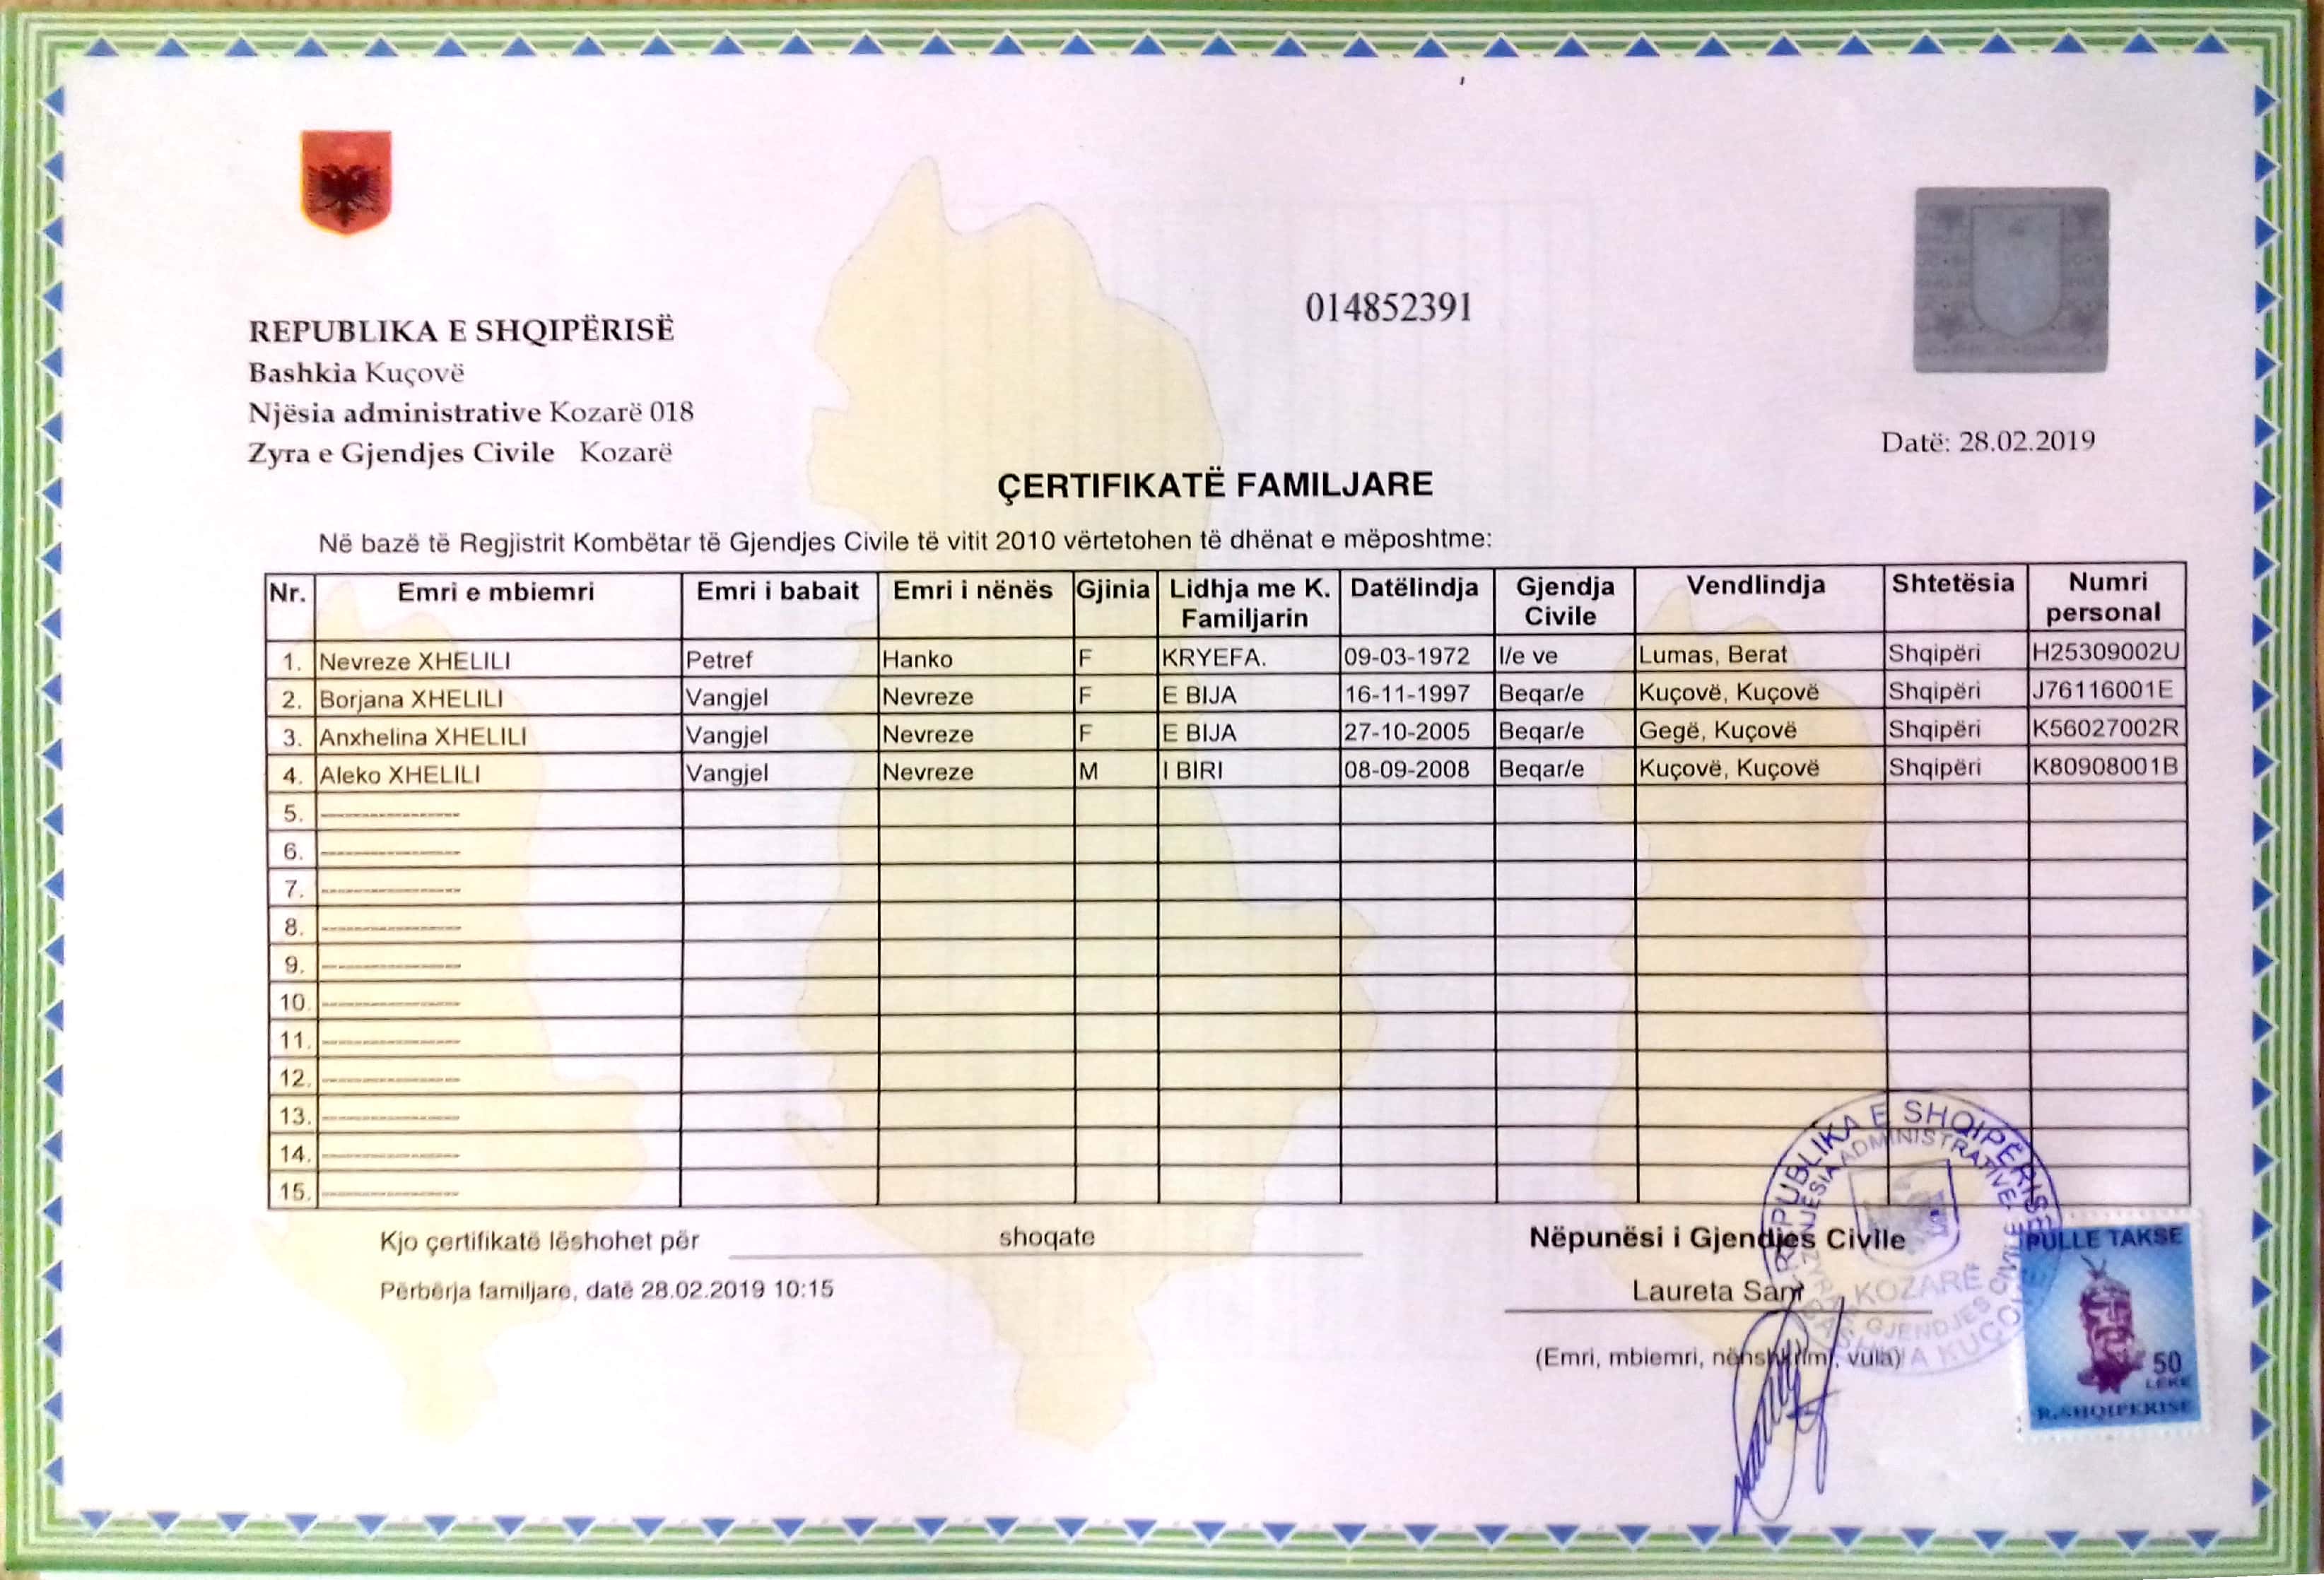 014852391
REPUBLIKA E SHQIPËRISË
Bashkia Kuçovë
Njësia administrative Kozarë 018
Zyra e Gjendjes Civile Kozarë
Datë: 28.02.2019
ÇERTIFIKATË FAMILJARE
Në bazë të Regjistrit Kombëtar të Gjendjes Civile të vitit 2010 vërtetohen të dhënat e mëposhtme:
Nr. Emri e mbiemri Emri i babait Emri i nënës Gjinia Lidhja me K. Familjarin Datëlindja Gjendja Civile Vendlindja Shtetësia Numri personal
1. Nevreze XHELILI Petref Hanko F KRYEFA. 09-03-1972 I/e ve Lumas, Berat Shqipëri H25309002U
2. Borjana XHELILI Vangjel Nevreze F E BIJA 16-11-1997 Beqar/e Kuçovë, Kuçovë Shqipëri J76116001E
3. Anxhelina XHELILI Vangjel Nevreze F E BIJA 27-10-2005 Beqar/e Gegë, Kuçovë Shqipëri K56027002R
4. Aleko XHELILI Vangjel Nevreze M I BIRI 08-09-2008 Beqar/e Kuçovë, Kuçovë Shqipëri K80908001B
5. --------------------
6. --------------------
7. --------------------
8. --------------------
9. --------------------
10. --------------------
11. --------------------
12. --------------------
13. --------------------
14. --------------------
15. --------------------
Kjo çertifikatë lëshohet për shoqate
Përbërja familjare, datë 28.02.2019 10:15
Nëpunësi i Gjendjes Civile
Laureta
(Emri, mbiemri, nënshkrimi, vula)
REPUBLIKA E SHQIPËRISË
NJËSIA ADMINISTRATIVE
KOZARË
ZYRA E GJENDJES CIVILE
BASHKIA KUÇOVË
PULLE TAKSE
50
LEKE
R.SHQIPERISE